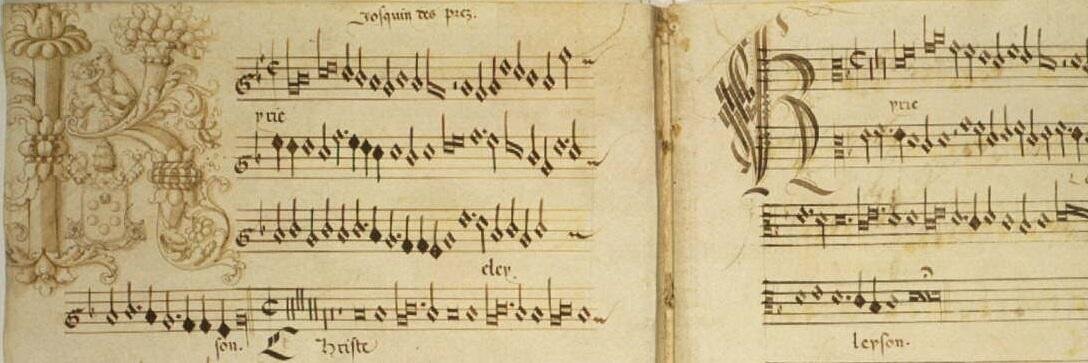 Josquin des prez.
K
yrie
eley
son. Christe
K
yrie
leyson.